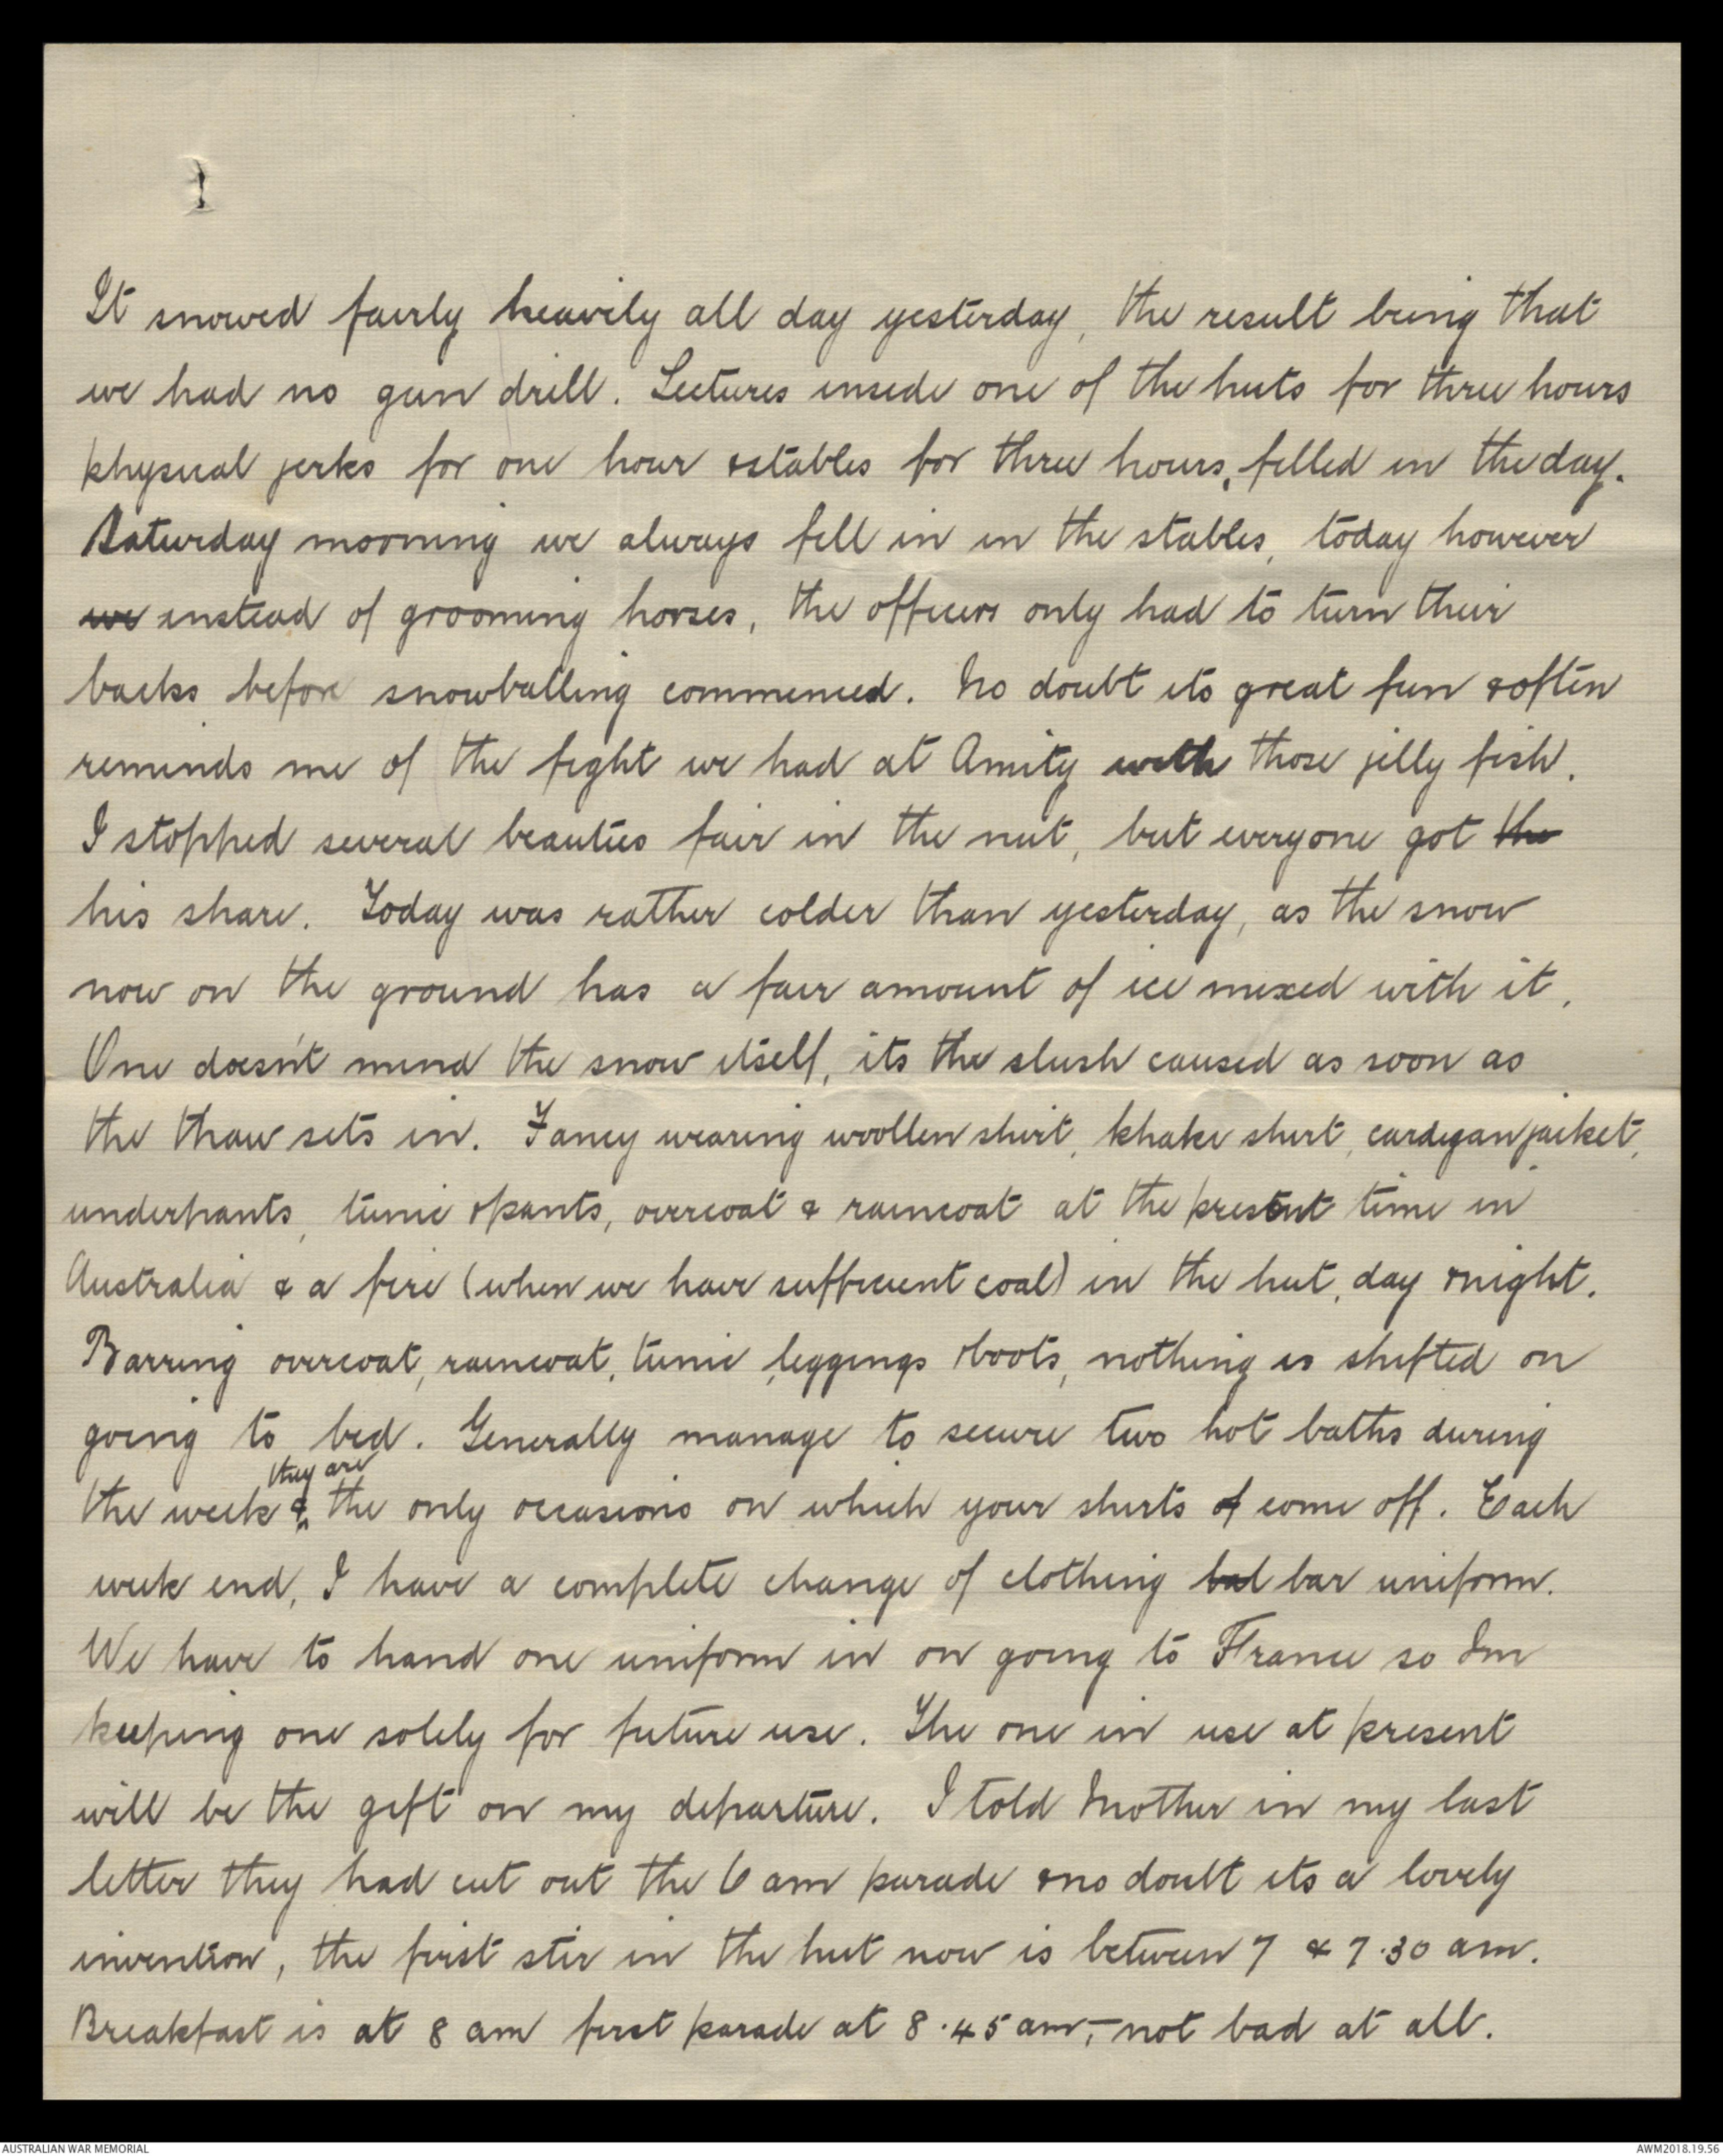 It snowed fairly heavily all day yesterday, the result being that
we had no gun drill. Lectures inside one of the huts for three hours
physical jerks for one hour & stables for three hours, filled in the day.
Saturday morning we always fell in in the stables, today however
we instead of grooming horses, the officers only had to turn their
backs before snowballing commenced. No doubt its great fun & often
reminds me of the fight we had at Amity with those jelly fish.
I stopped several beauties fair in the nut, but everyone got the
his share. Today was rather colder than yesterday, as the snow
now on the ground has a fair amount of ice mixed with it.
One doesn't mind the snow itself, its the slush caused as soon as
the thaw sets in. Fancy wearing woollen shirt, khake shirt, cardigan jacket,
underpants, tunic & pants, overcoat & raincoat at the present time in
Australia & a fire (when we have sufficient coal) in the hut, day & night.
Barring overcoat, raincoat, tunic, leggings & boots, nothing is shifted on
going to bed. Generally manage to secure two hot baths during
they are
the week & the only occasions on which your shirts of come off. Each
week end, I have a complete change of clothing bal bar uniform.
We have to hand one uniform in on going to France so Im
keeping one solely for future use. The one in use at present
will be the gift on my departure. I told Mother in my last
letter they had cut out the 6 am parade & no doubt its a lovely
invention, the first stir in the hut now is between 7 & 7.30 am.
Breakfast is at 8 am first parade at 8.45 am, - not bad at all.
AUSTRALIAN WAR MEMORIAL
AWM2018.19.56